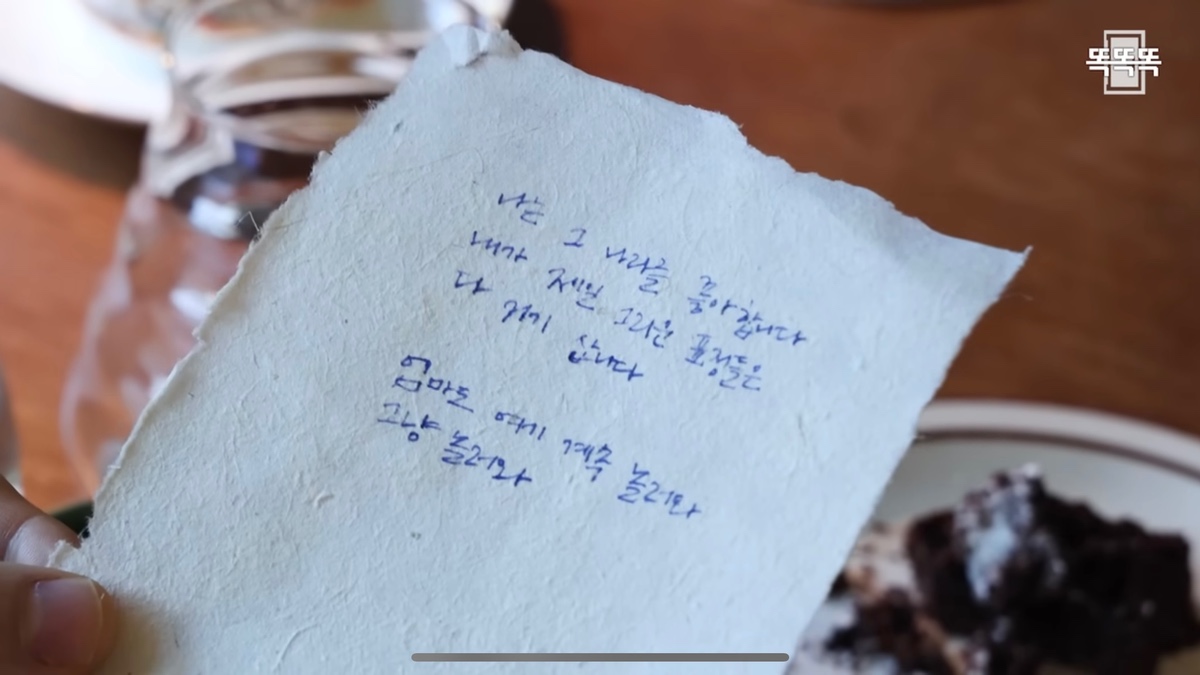 똑똑똑
나는 그 나라를 좋아합니다
내가 제일 그리운 표정들은
다 거기 삽니다
엄마도 여기 계속 놀러와
그냥 놀러와